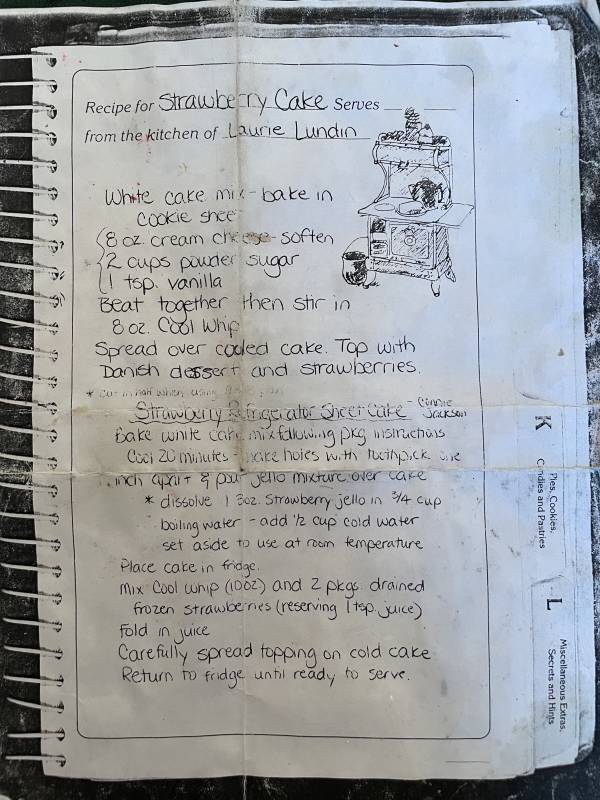 Recipe for Strawberry Cake Serves
from the kitchen of Laurie Lundin
White cake mix - bake in
cookie sheet
8 oz. cream cheese - soften
2 cups powder sugar
1 tsp. vanilla
Beat together then stir in
8 oz. Cool Whip
Spread over cooled cake. Top with
Danish dessert and strawberries.
* cut in half when using
Strawberry Refrigerator Sheet Cake - Connie Jackson
Bake white cake mix following pkg instructions
Cool 20 minutes - make holes with toothpick one
inch apart & pour jello mixture over cake
* dissolve 1 3oz. strawberry jello in 3/4 cup
boiling water - add 1/2 cup cold water
set aside to use at room temperature
Place cake in fridge.
Mix Cool Whip (10oz) and 2 pkgs. drained
frozen strawberries (reserving 1 tsp. juice)
Fold in juice
Carefully spread topping on cold cake
Return to fridge until ready to serve.
K
Pies, Cookies,
Candies and Pastries
L
Miscellaneous Extras,
Secrets and Hints